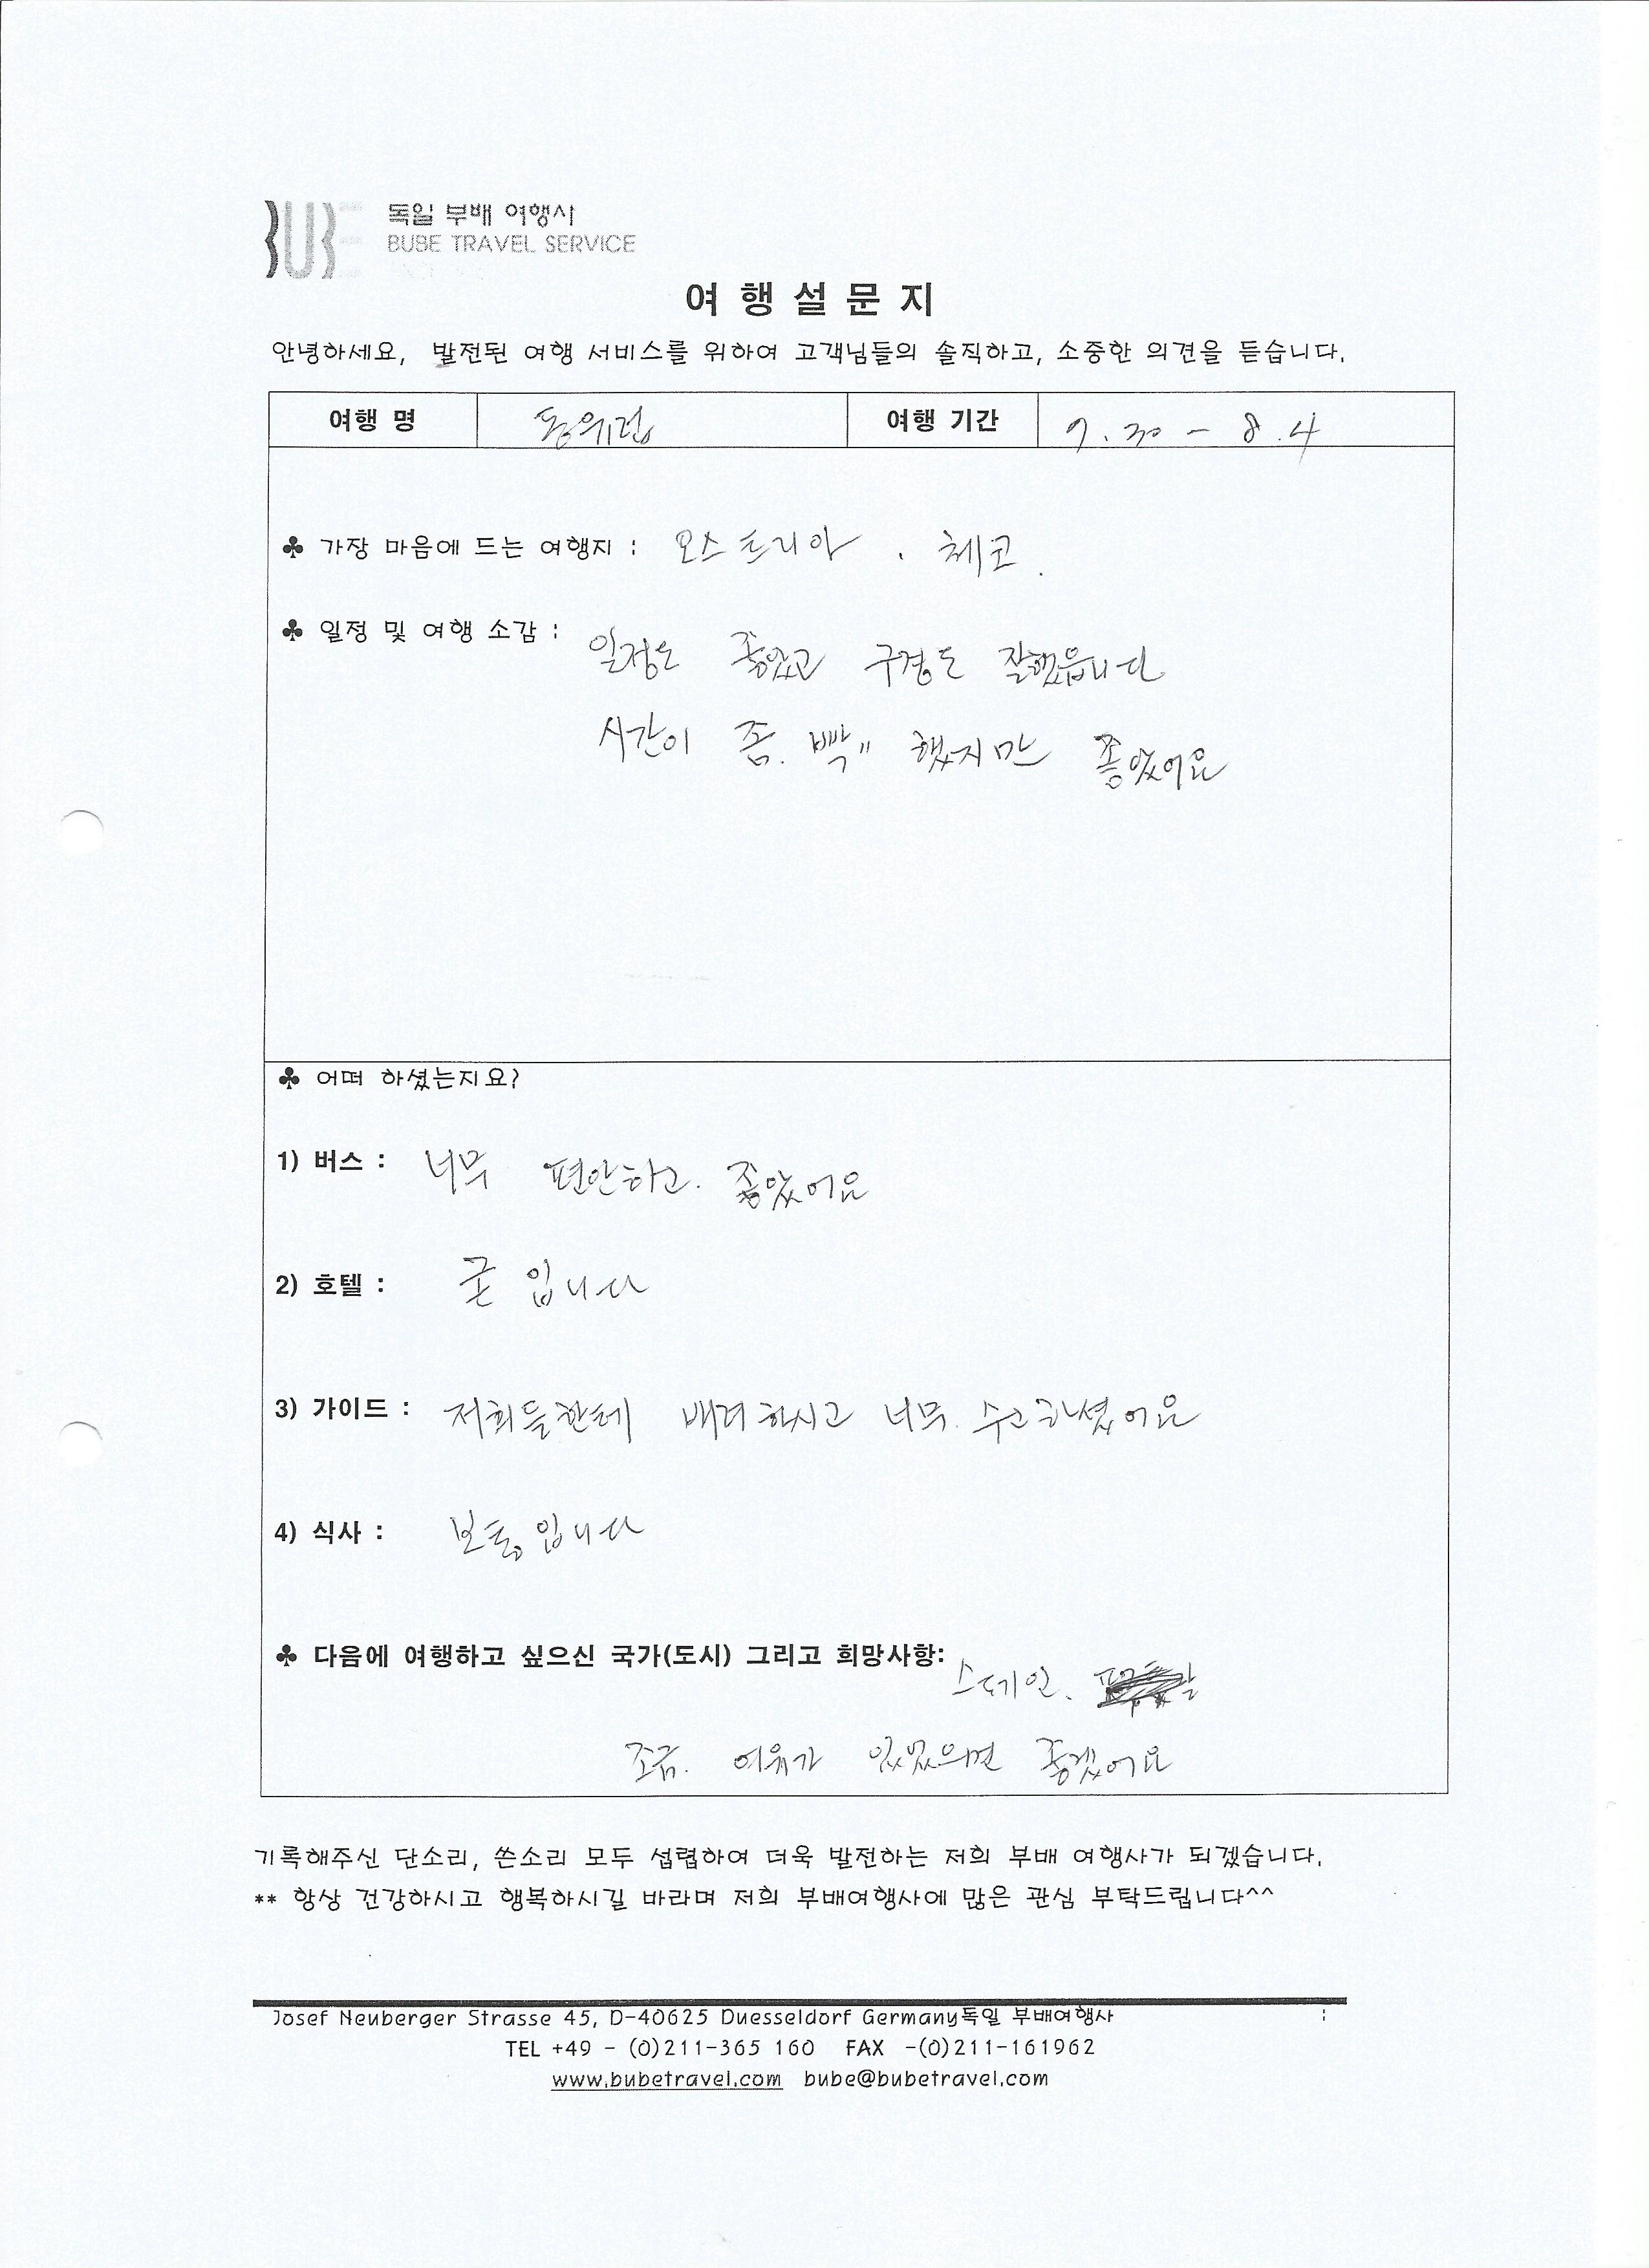 BUBE 독일 부배 여행사
BUBE TRAVEL SERVICE
여 행 설 문 지
안녕하세요, 발전된 여행 서비스를 위하여 고객님들의 솔직하고, 소중한 의견을 듣습니다.
여행 명 동유럽 여행 기간 7.30 - 8.4
♣ 가장 마음에 드는 여행지 : 오스트리아 . 체코.
♣ 일정 및 여행 소감 : 일정도 좋았고 구경도 잘했읍니다
시간이 좀. 빡〃 했지만 좋았어요
♣ 어떠 하셨는지요?
1) 버스 : 너무 편안하고. 좋았어요
2) 호텔 : 굳 입니다
3) 가이드 : 저희들한테 배려하시고 너무. 수고하셨어요
4) 식사 : 보통입니다
♣ 다음에 여행하고 싶으신 국가(도시) 그리고 희망사항: 스페인.
조금. 여유가 있었으면 좋겠어요
기록해주신 단소리, 쓴소리 모두 섭렵하여 더욱 발전하는 저희 부배 여행사가 되겠습니다.
** 항상 건강하시고 행복하시길 바라며 저희 부배여행사에 많은 관심 부탁드립니다^^
Josef Neuberger Strasse 45, D-40625 Duesseldorf Germany독일 부배여행사
TEL +49 - (0)211-365 160 FAX -(0)211-161962
www.bubetravel.com bube@bubetravel.com